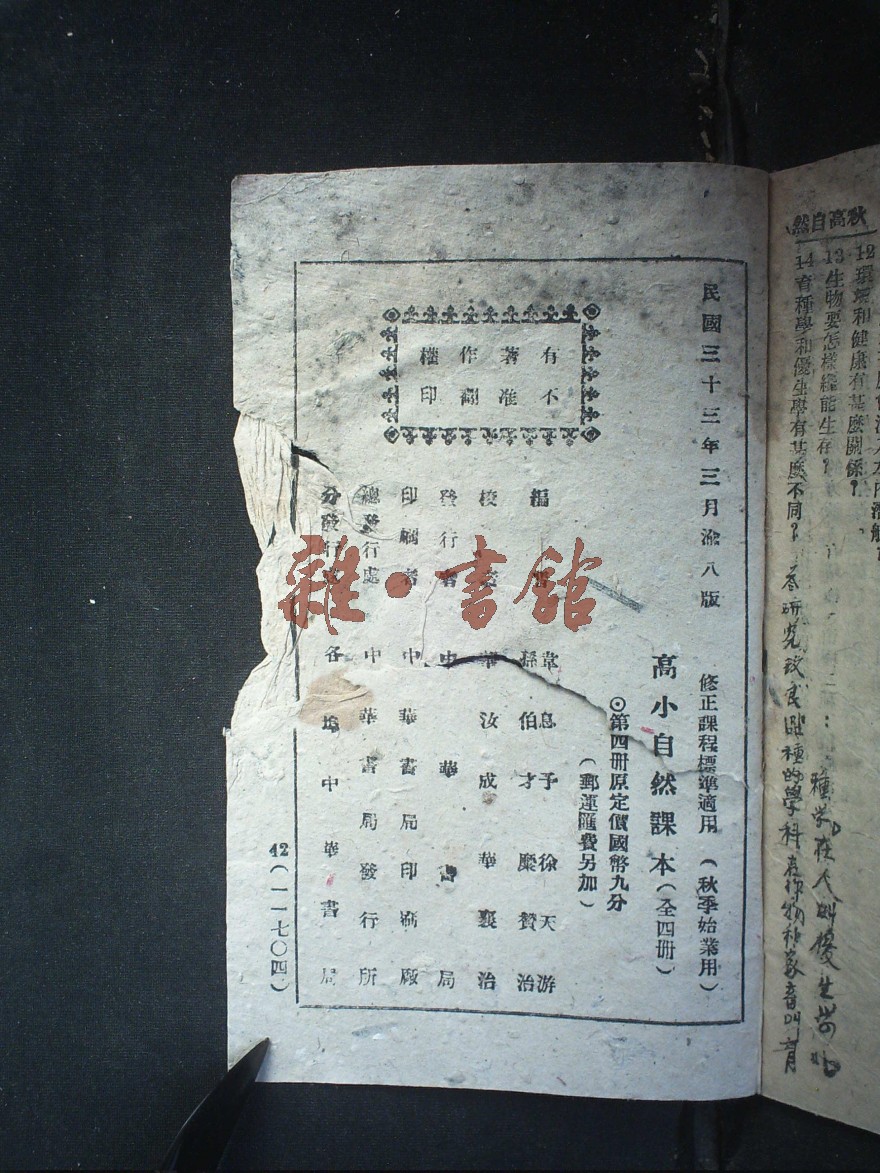 秋高自然
12環境和健康有甚麼關係？
13生物要怎樣纔能生存？
14育種學和優生學有甚麼不同？
民國三十三年三月渝八版
修正課程標準適用（秋季始業用）
高小自然課本（全四冊）
⊙第四冊原定價國幣九分
（郵運匯費另加）
有著作權
不准翻印
編 韋息予 徐天游
孫伯才 廖贊治
校 華汝成 華襄治
發行者 中華書局
印刷者 中華書局印刷廠
總發行處 中華書局發行所
分發行處 各埠中華書局
42（一一七〇四）
雜·書館